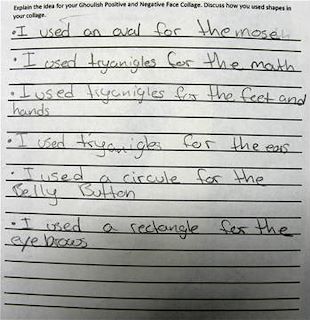 Explain the idea for your Ghoulish Positive and Negative Face Collage. Discuss how you used shapes in
your collage.
• I used an oval for the mose
• I used tryanigles for the math
• I used tryanigles for the feet and
hands
• I used tryanigles for the ears
• I used a circule for the
Belly Button
• I used a rectangle for the
eye brows